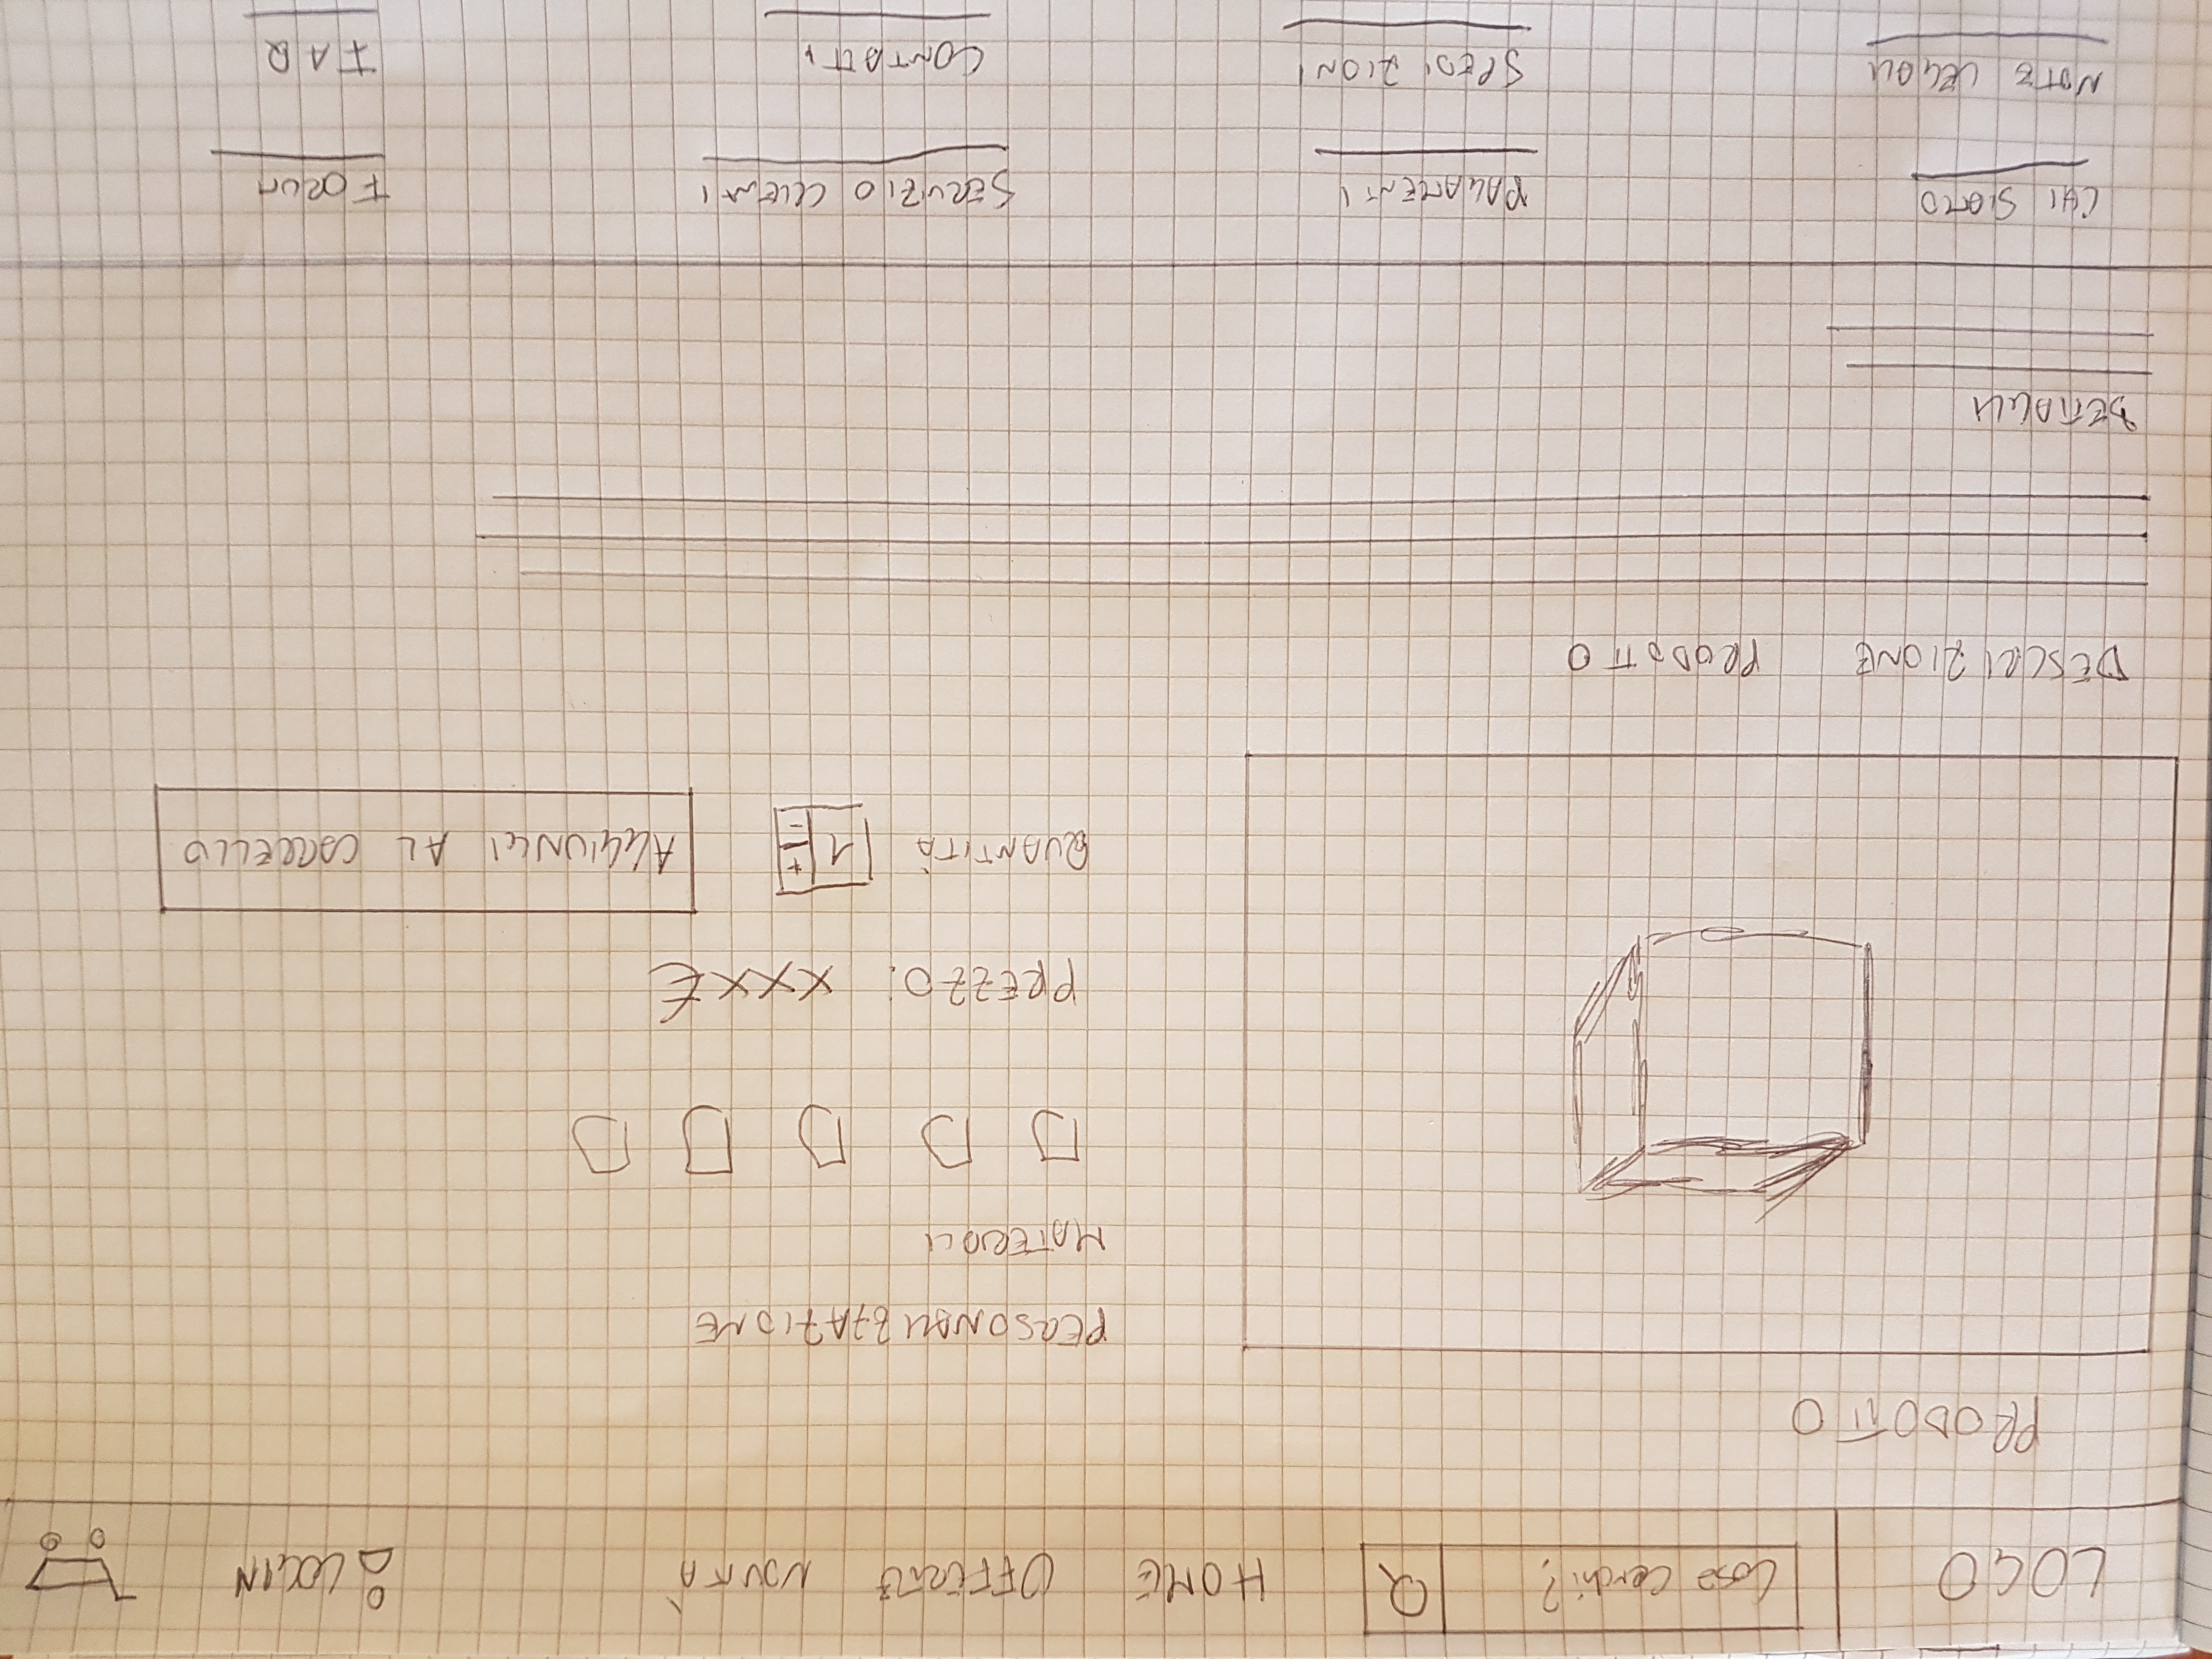 LOGO
Cosa cerchi?
HOME OFFERTE NOVITÀ
LOGIN
PRODOTTO
PERSONALIZZAZIONE
MATERIALI
PREZZO: XXX€
QUANTITÀ 1 + -
AGGIUNGI AL CARRELLO
DESCRIZIONE PRODOTTO
DETTAGLI
CHI SIAMO PAGAMENTI SERVIZIO CLIENTI FORUM
NOTE LEGALI SPEDIZIONI CONTATTI FAQ